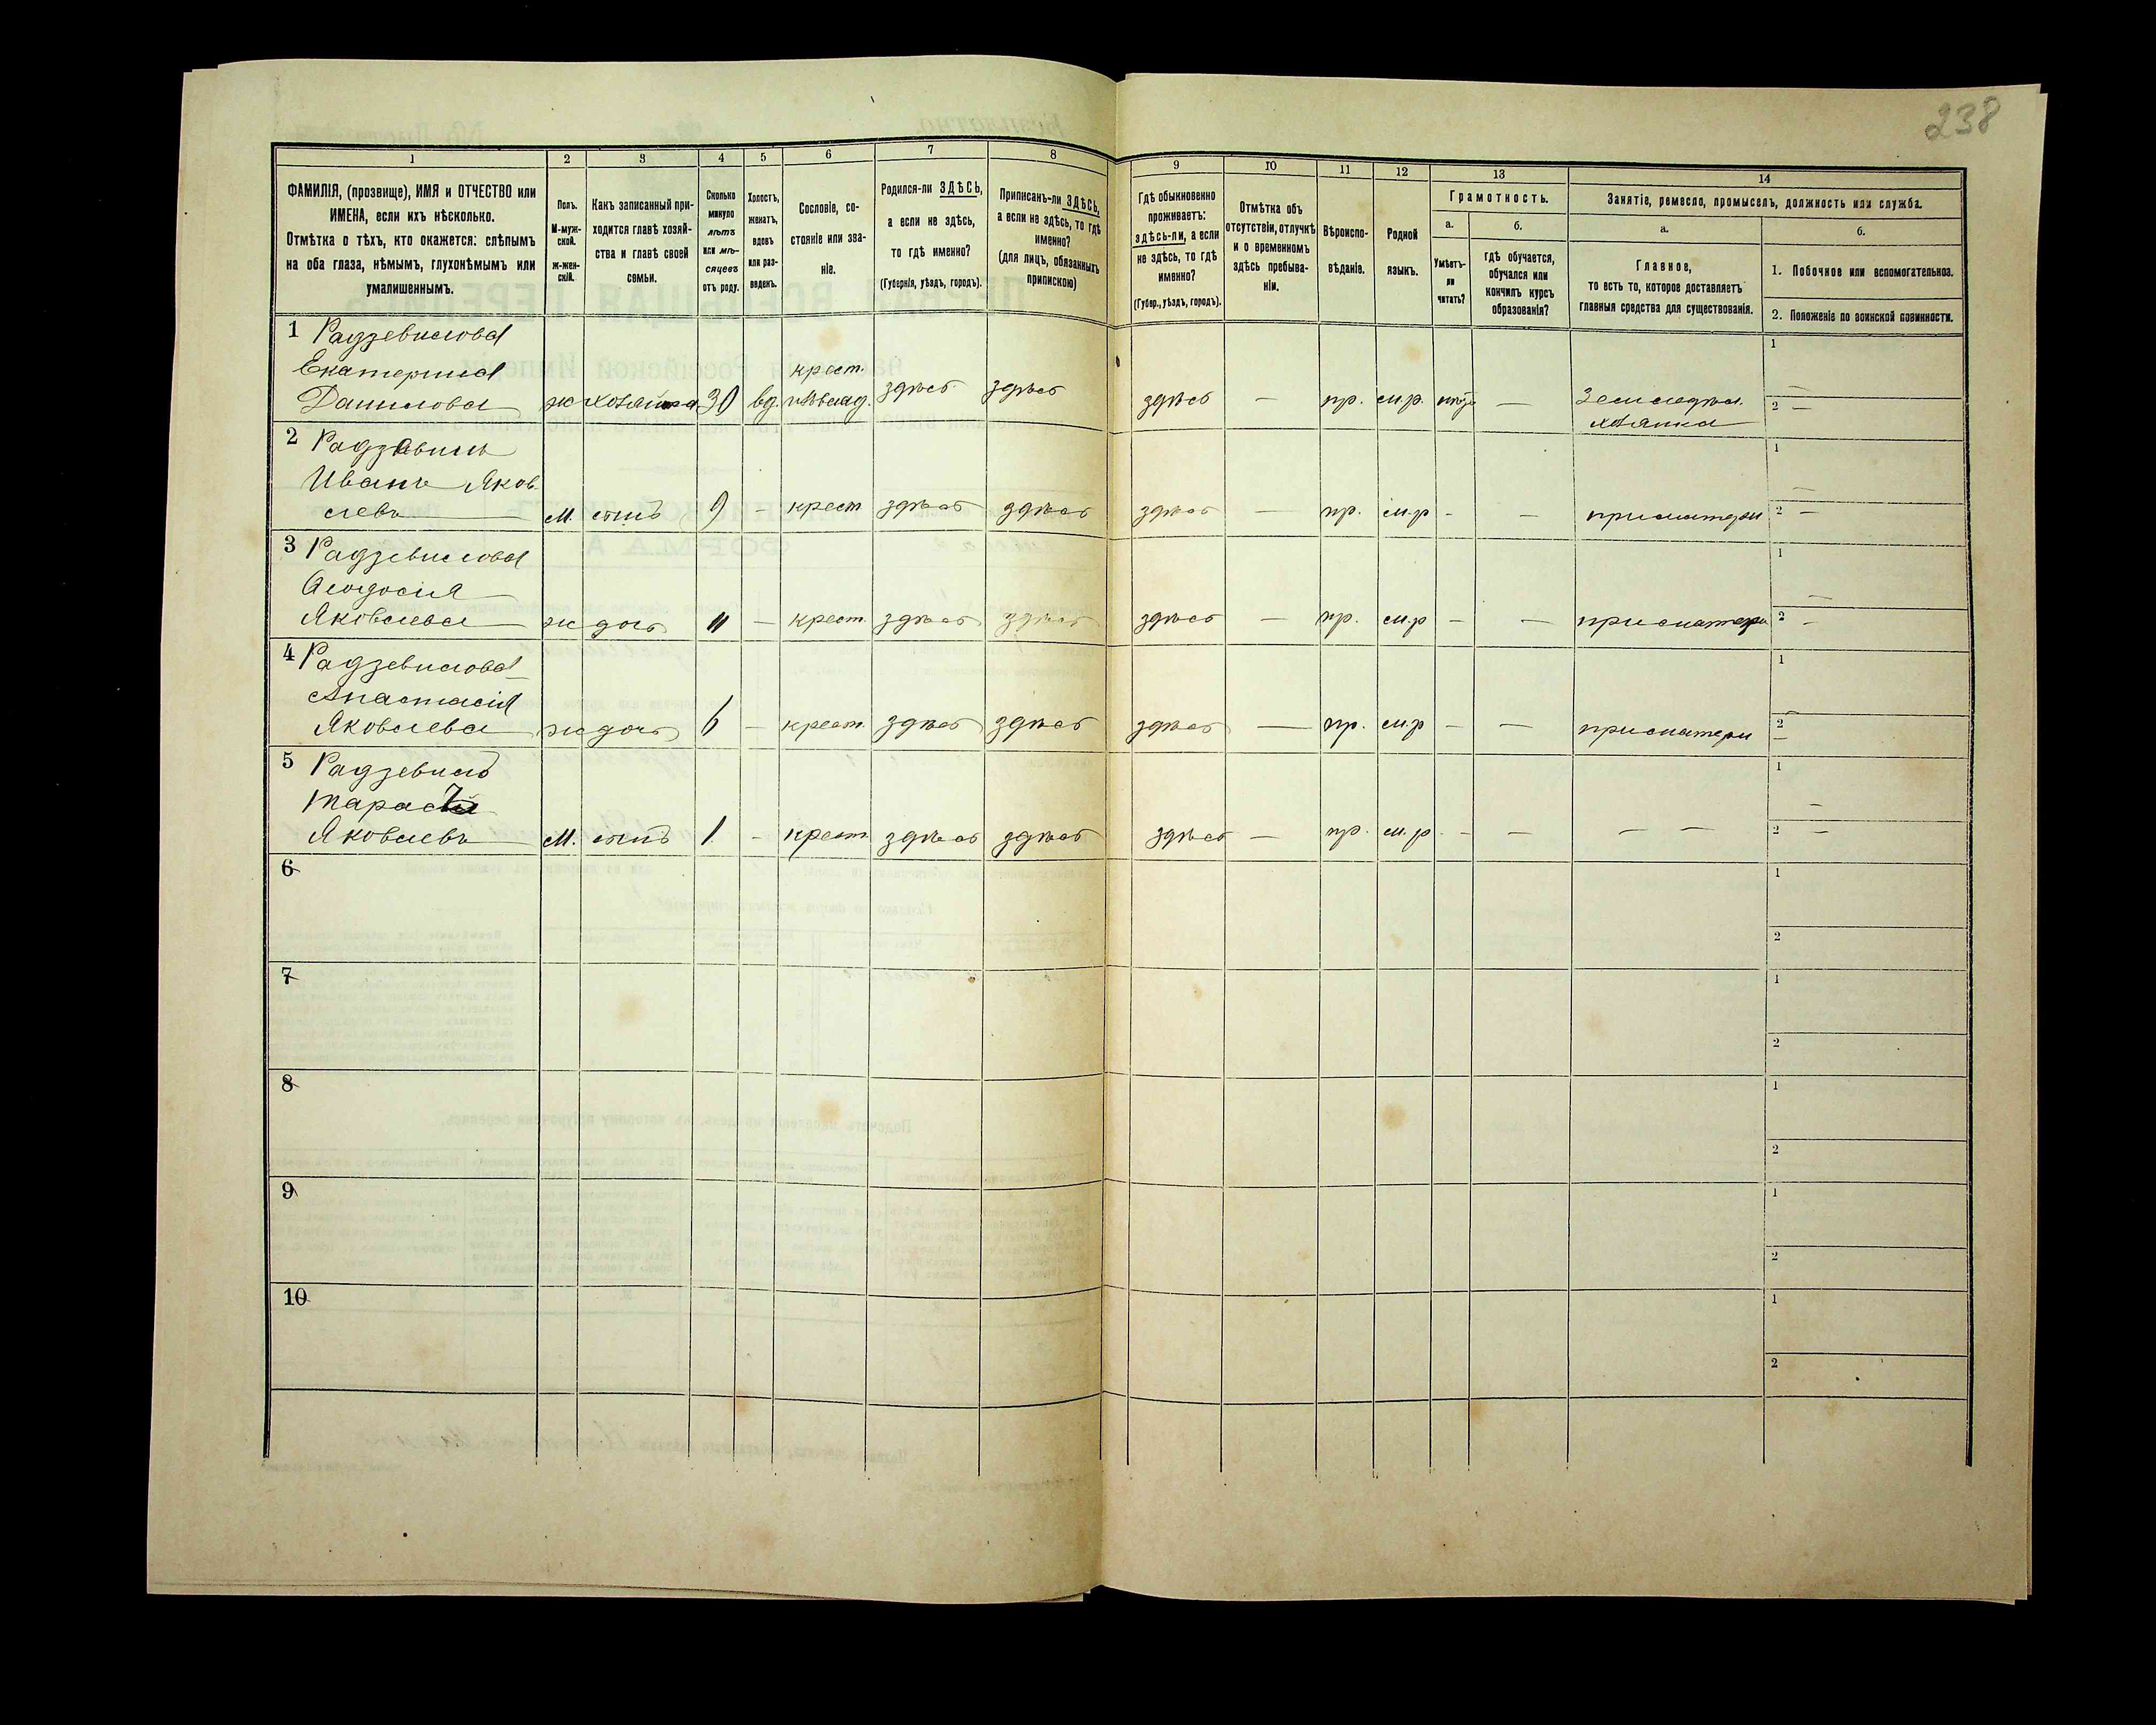 238
1
2
3
4
5
6
7
8
9
10
11
12
13
14
ФАМИЛІЯ, (прозвище), ИМЯ и ОТЧЕСТВО или
ИМЕНА, если ихъ нѣсколько.
Отмѣтка о тѣхъ, кто окажется: слѣпымъ
на оба глаза, нѣмымъ, глухонѣмымъ или
умалишеннымъ.
Полъ.
М-муж-
ской.
Ж-жен-
скій.
Какъ записанный при-
ходится главѣ хозяй-
ства и главѣ своей
семьи.
Сколько
минуло
лѣтъ
или мѣ-
сяцевъ
отъ роду.
Холостъ,
женатъ,
вдовъ
или раз-
веденъ.
Сословіе, со-
стояніе или зва-
ніе.
Родился-ли ЗДѢСЬ,
а если не здѣсь,
то гдѣ именно?
(Губернія, уѣздъ, городъ).
Приписанъ-ли ЗДѢСЬ,
а если не здѣсь, то гдѣ
именно?
(для лицъ, обязанныхъ
припискою)
Гдѣ обыкновенно
проживаетъ:
здѣсь-ли, а если
не здѣсь, то гдѣ
именно?
(Губер., уѣздъ, городъ).
Отмѣтка объ
отсутствіи, отлучкѣ
и о временномъ
здѣсь пребыва-
ніи.
Вѣроиспо-
вѣданіе.
Родной
языкъ.
Грамотность.
а.
Умѣетъ-
ли
читать?
б.
гдѣ обучается,
обучался или
кончилъ курсъ
образованія?
Занятіе, ремесло, промыселъ, должность или служба.
а.
Главное,
то есть то, которое доставляетъ
главныя средства для существованія.
б.
1. Побочное или вспомогательное.
2. Положеніе по воинской повинности.
1 Радзевилова
Екатерина
Данилова ж хозяйка 30 вд. крест. здѣсь здѣсь здѣсь — пр. м.р. — Земледѣл.
хозяйка
1 —
2 —
2 Радзевилъ
Иванъ Яков
левъ м. сынъ 9 - крест здѣсь здѣсь здѣсь — пр. м.р - — при матери
1 —
2 —
3 Радзевилова
Ѳеодосія
Яковлева ж дочь 11 — крест. здѣсь здѣсь здѣсь — пр. м.р - — при матери
1 —
2 —
4 Радзевилова
Анастасія
Яковлева ж дочь 6 — крест. здѣсь здѣсь здѣсь — пр. м.р - — при матери
1
2 —
5 Радзевилъ
Тарасій
Яковлевъ м. сынъ 1 - крест. здѣсь здѣсь здѣсь — пр. м.р - — — —
1 —
2 —
6
1
2
7
1
2
8
1
2
9
1
2
10
1
2